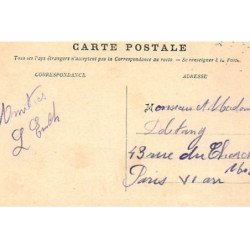 CARTE POSTALE
Tous les Pays étrangers n'acceptent pas la Correspondance au recto. — Se renseigner à la Poste.
CORRESPONDANCE
ADRESSE
Amitiés
Monsieur & Madame
43 rue du Cherche
Paris VI arr